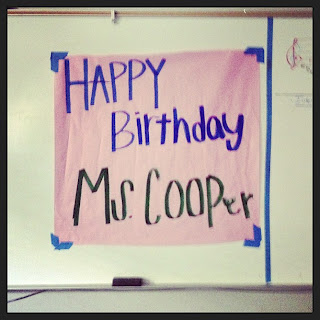 HAPPY
Birthday
Ms. Cooper